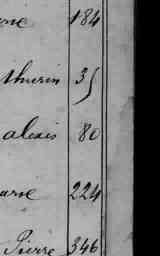 184
thurin 35
alexis 80
224
Pierre 346